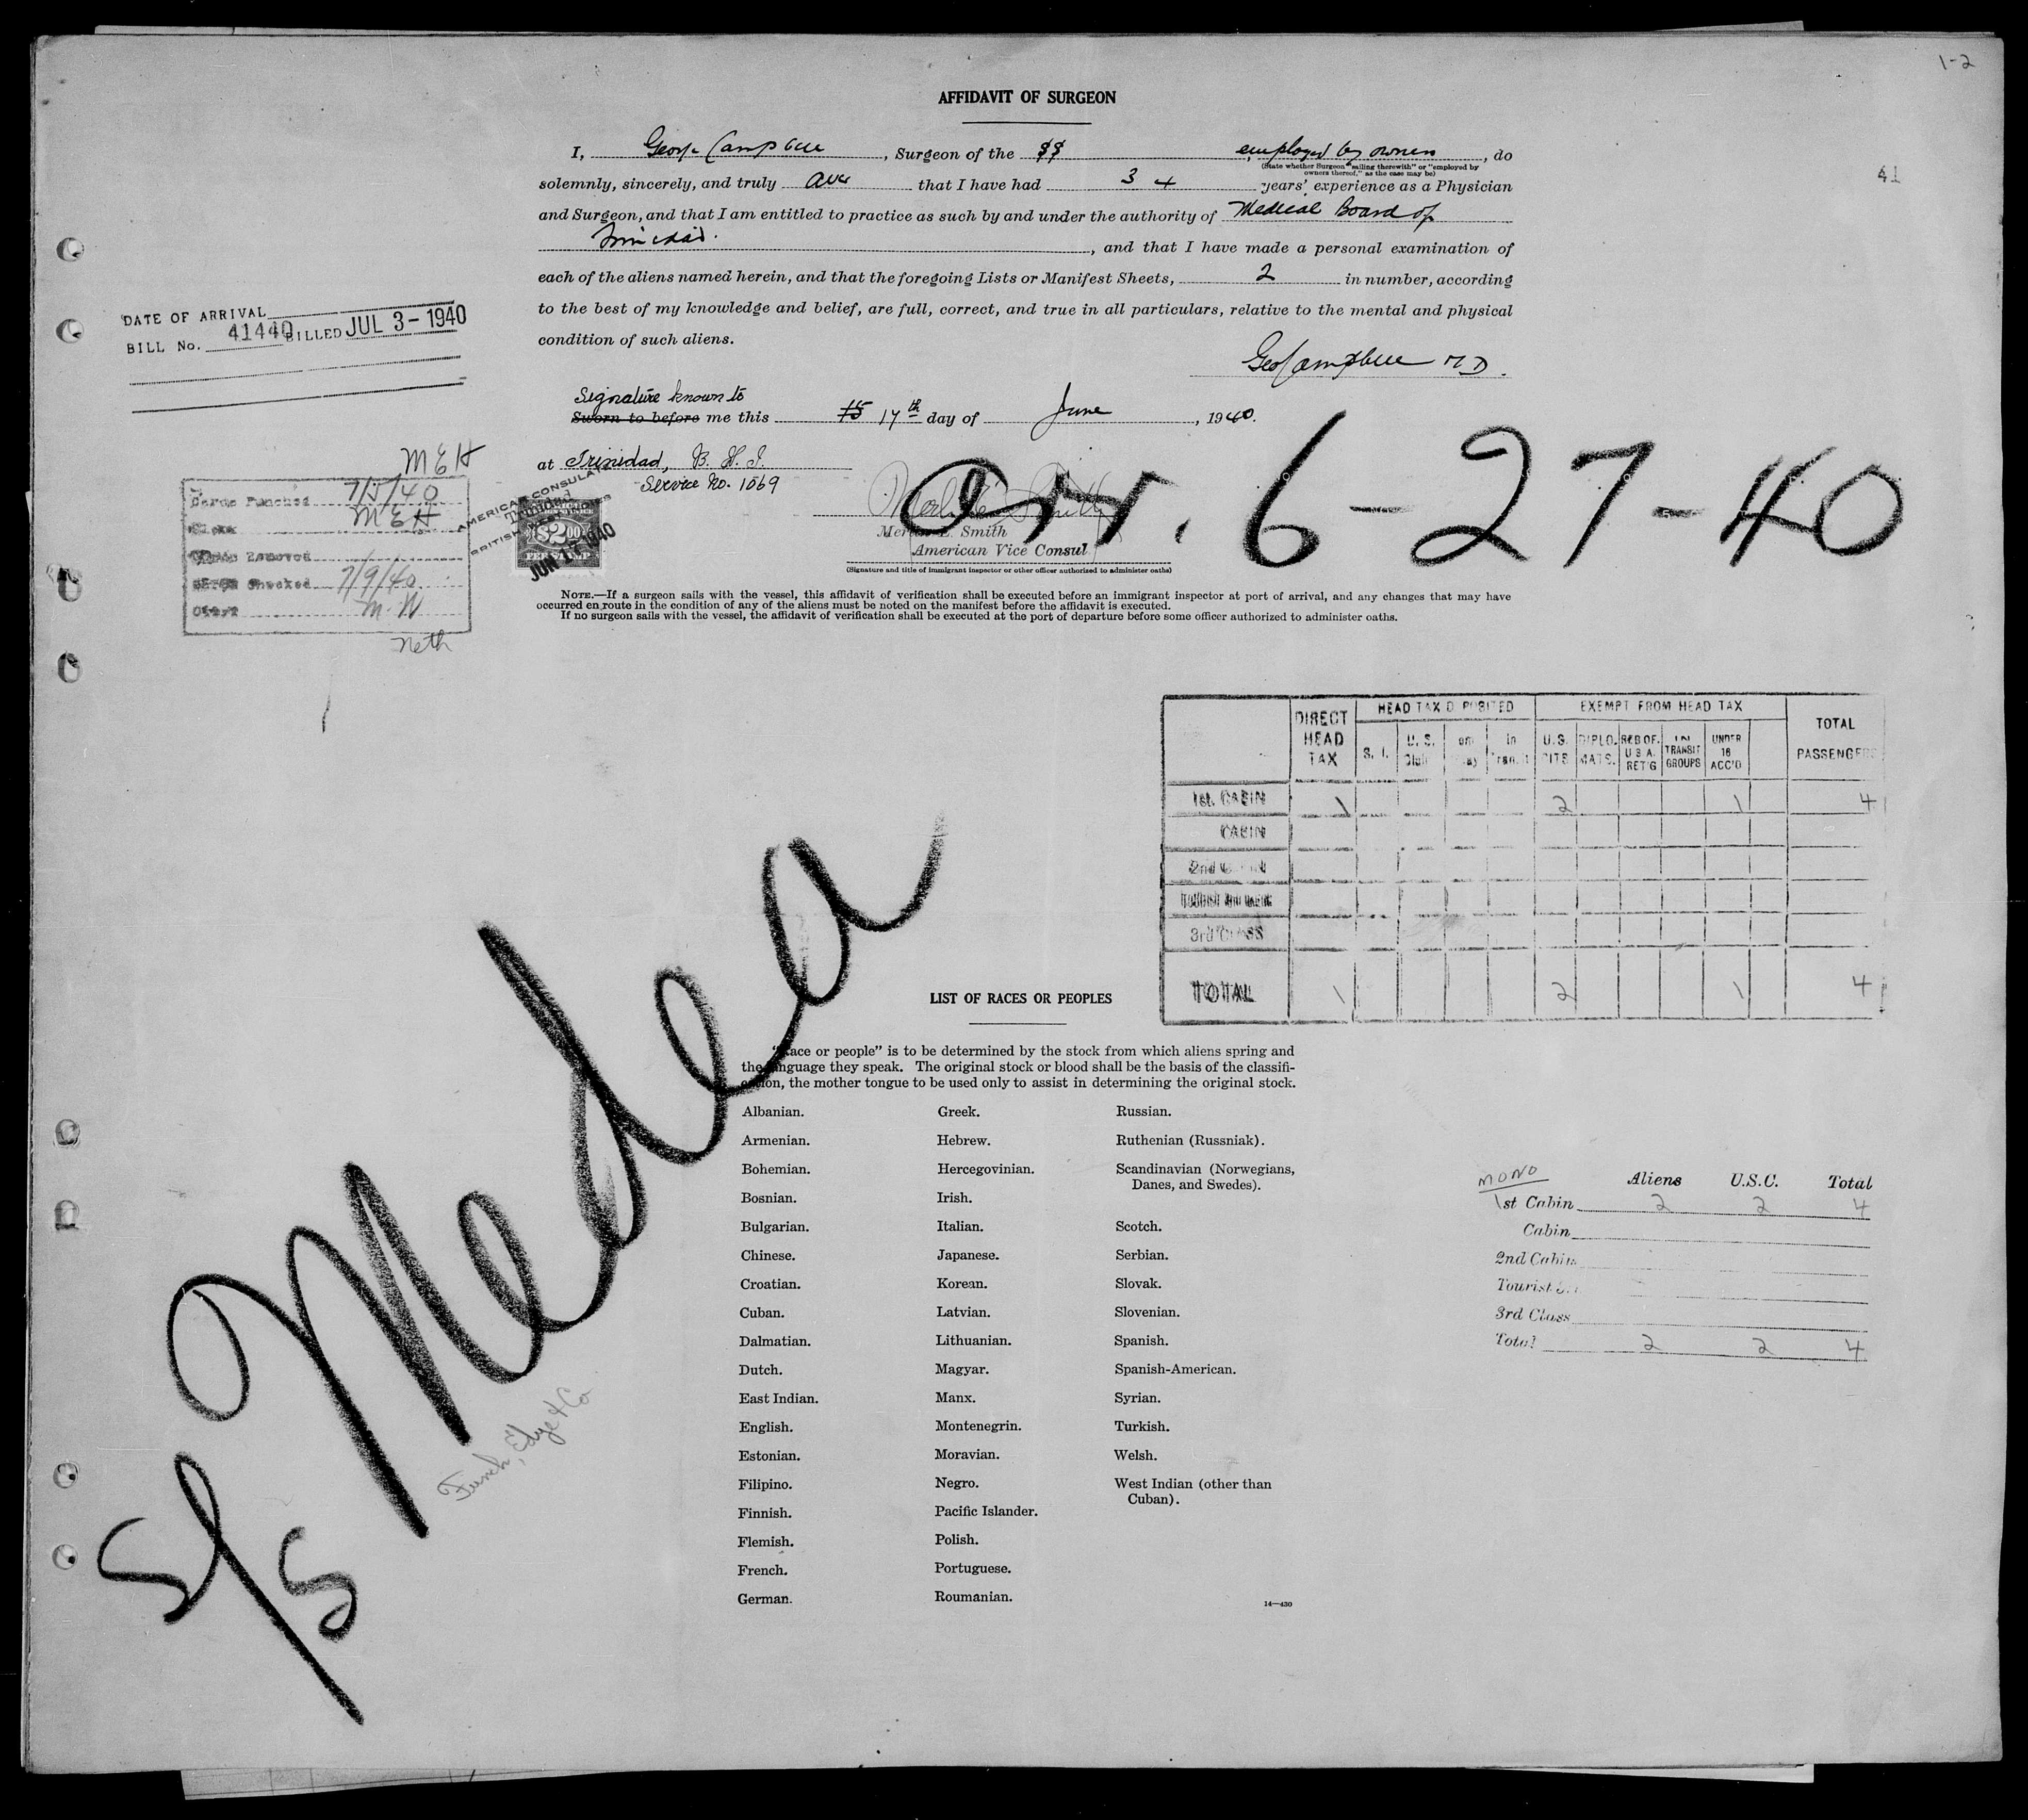 1-2
41
AFFIDAVIT OF SURGEON
I, George Campbell, Surgeon of the SS employed by owners, do
(State whether Surgeon "sailing therewith" or "employed by owners thereof," as the case may be)
solemnly, sincerely, and truly aver that I have had 34 years' experience as a Physician
and Surgeon, and that I am entitled to practice as such by and under the authority of Medical Board of
Trinidad., and that I have made a personal examination of
each of the aliens named herein, and that the foregoing Lists or Manifest Sheets, 2 in number, according
to the best of my knowledge and belief, are full, correct, and true in all particulars, relative to the mental and physical
condition of such aliens.
Geo Campbell M D.
DATE OF ARRIVAL
BILL No. 41440 BILLED JUL 3-1940
Signature known to
Sworn to before me this 15 17th day of June, 1940.
at Trinidad, B. W. I.
Service No. 1069
AMERICAN CONSULATE
Trinidad
BRITISH
$2.00
FEE STAMP
JUN 17 1940
Arr. 6-27-40
Merlin E. Smith
American Vice Consul
(Signature and title of immigrant inspector or other officer authorized to administer oaths)
MEH
Cards Punched 7/5/40
Clerk MEH
Cards Removed
Cards Checked 7/9/40
Clerk M.W
Neth
NOTE.—If a surgeon sails with the vessel, this affidavit of verification shall be executed before an immigrant inspector at port of arrival, and any changes that may have
occurred en route in the condition of any of the aliens must be noted on the manifest before the affidavit is executed.
If no surgeon sails with the vessel, the affidavit of verification shall be executed at the port of departure before some officer authorized to administer oaths.
DIRECT HEAD TAX
HEAD TAX DEPOSITED
EXEMPT FROM HEAD TAX
TOTAL PASSENGERS
S. I.
U. S.
In Transit
U.S. CITS
DIPLOMATS.
RES OF. U S A. RET'G
IN TRANSIT GROUPS
UNDER 16 ACC'D
1st. CABIN 1 2 1 4
CABIN
2nd CABIN
3rd CLASS
TOTAL 1 2 1 4
S/S Medea
Funch, Edye & Co
LIST OF RACES OR PEOPLES
"Race or people" is to be determined by the stock from which aliens spring and
the language they speak. The original stock or blood shall be the basis of the classifi-
cation, the mother tongue to be used only to assist in determining the original stock.
Albanian.
Armenian.
Bohemian.
Bosnian.
Bulgarian.
Chinese.
Croatian.
Cuban.
Dalmatian.
Dutch.
East Indian.
English.
Estonian.
Filipino.
Finnish.
Flemish.
French.
German.
Greek.
Hebrew.
Hercegovinian.
Irish.
Italian.
Japanese.
Korean.
Latvian.
Lithuanian.
Magyar.
Manx.
Montenegrin.
Moravian.
Negro.
Pacific Islander.
Polish.
Portuguese.
Roumanian.
Russian.
Ruthenian (Russniak).
Scandinavian (Norwegians,
Danes, and Swedes).
Scotch.
Serbian.
Slovak.
Slovenian.
Spanish.
Spanish-American.
Syrian.
Turkish.
Welsh.
West Indian (other than
Cuban).
14—430
MONO
Aliens U.S.C. Total
1st Cabin 2 2 4
Cabin
2nd Cabin
Tourist
3rd Class
Total 2 2 4